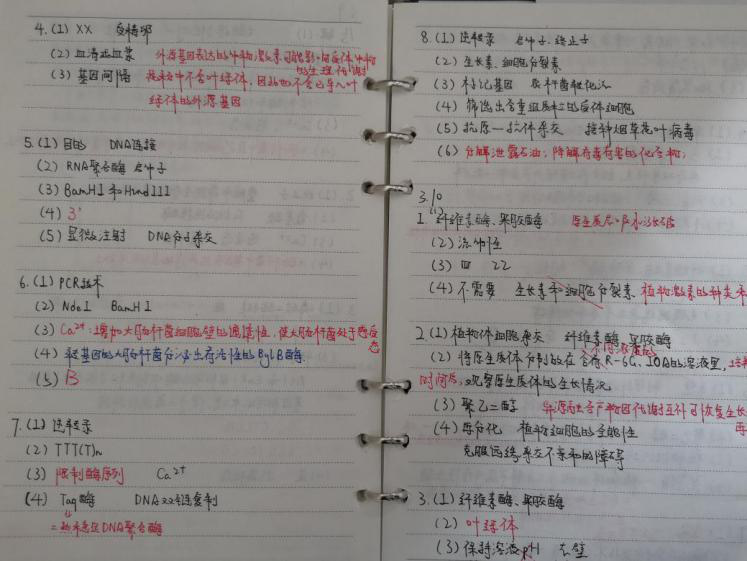 4.(1) XX
(2) 血清或血浆 外源基因表达的
(3) 基因间隔 不含叶绿体,因此也不含已导入叶
绿体的外源基因
5.(1) 目的 DNA连接
(2) RNA聚合酶 启动子
(3) BamHI和HindIII
(4) 3'
(5) 显微注射 DNA分子杂交
6.(1) PCR技术
(2) NdeI BamHI
(3) Ca²⁺:增加大肠杆菌细胞壁的通透性,使大肠杆菌处于感受
态
(4) 基因的大肠杆菌分泌出有活性的BglB酶
(5) B
7.(1) 逆转录
(2) TTT(T)n
(3) 限制酶序列 Ca²⁺
(4) Taq酶 DNA双链复制
=热稳定DNA聚合酶
8.(1) 逆转录 启动子、终止子
(2) 生长素、细胞分裂素
(3) 标记基因 农杆菌转化法
(4) 筛选出含重组质粒的受体细胞
(5) 抗原—抗体杂交 接种烟草花叶病毒
(6) 分解泄露石油;降解有毒有害的化合物;
3.10
1.(1) 纤维素酶、果胶酶 原生质层吸水涨破
(2) 流动性
(3) 四 22
(4) 不需要 生长素和细胞分裂素 植物激素的种类和
2.(1) 植物体细胞杂交 纤维素酶、果胶酶
不同浓度的
(2) 将原生质体分别放在含有R-6G、IOA的溶液里,
时间后,观察原生质体的生长情况
(3) 聚乙二醇 异源融合产物因代谢互补可恢复生长
再
(4) 再分化 植物细胞的全能性
克服远缘杂交不亲和的障碍
3.(1) 纤维素酶、果胶酶
(2) 叶绿体
(3) 保持溶液pH 去壁